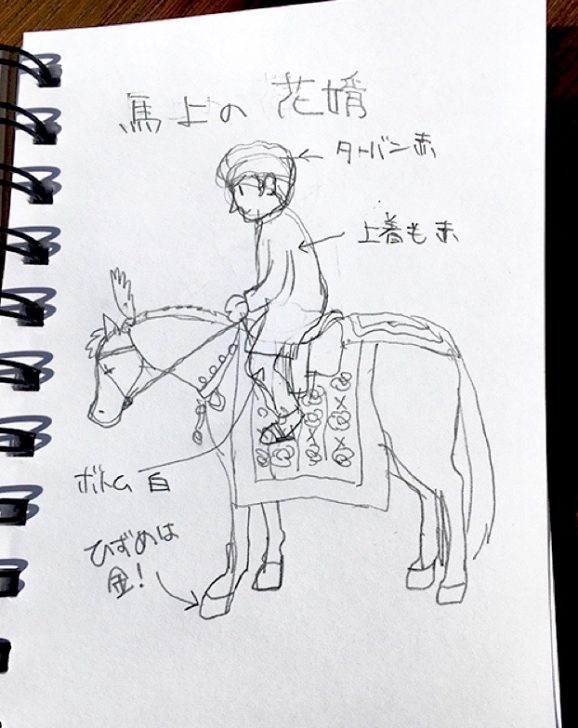 馬上の花婿
ターバン赤
上着も赤
ボトム白
ひづめは
金!